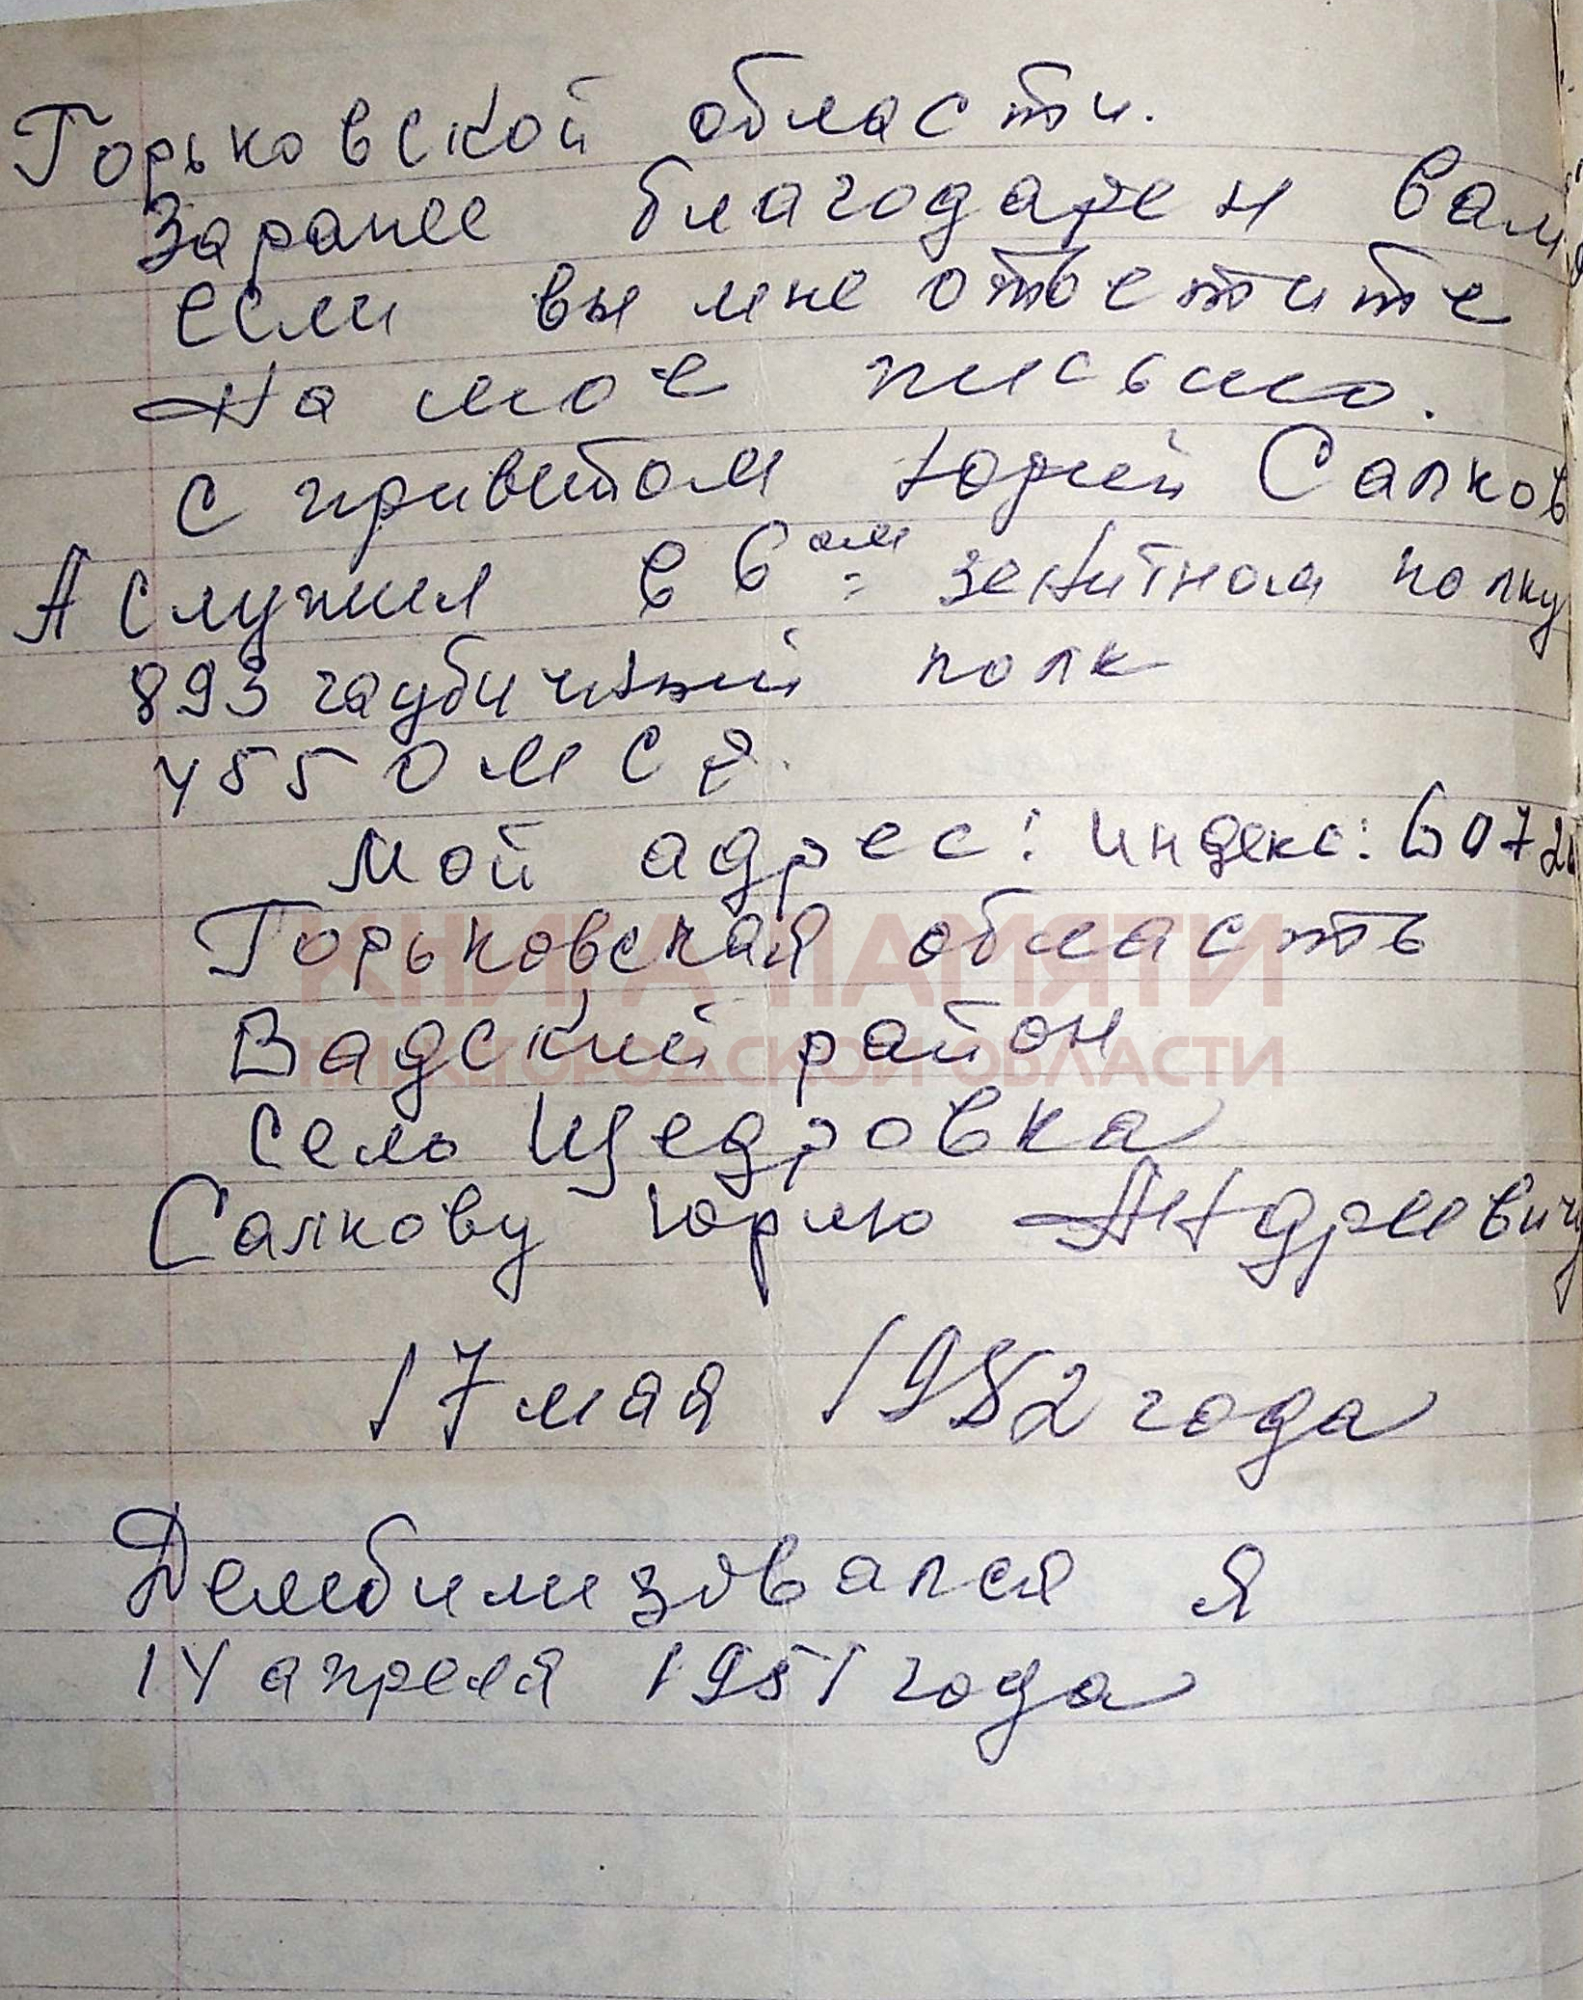 Горьковской области.
Заранее благодарен вам
если вы мне ответите
На мое письмо.
с приветом Юрий Салков
А служил в 6ом зенитном полку
893 гаубичный полк
455 ОМСД.
Мой адрес: индекс: 6072
Горьковская область
КНИГА ПАМЯТИ
Вадский район
НИЖЕГОРОДСКОЙ ОБЛАСТИ
село Щедровка
Салкову Юрию Андреевичу
17 мая 1982 года
Демобилизовался я
14 апреля 1951 года